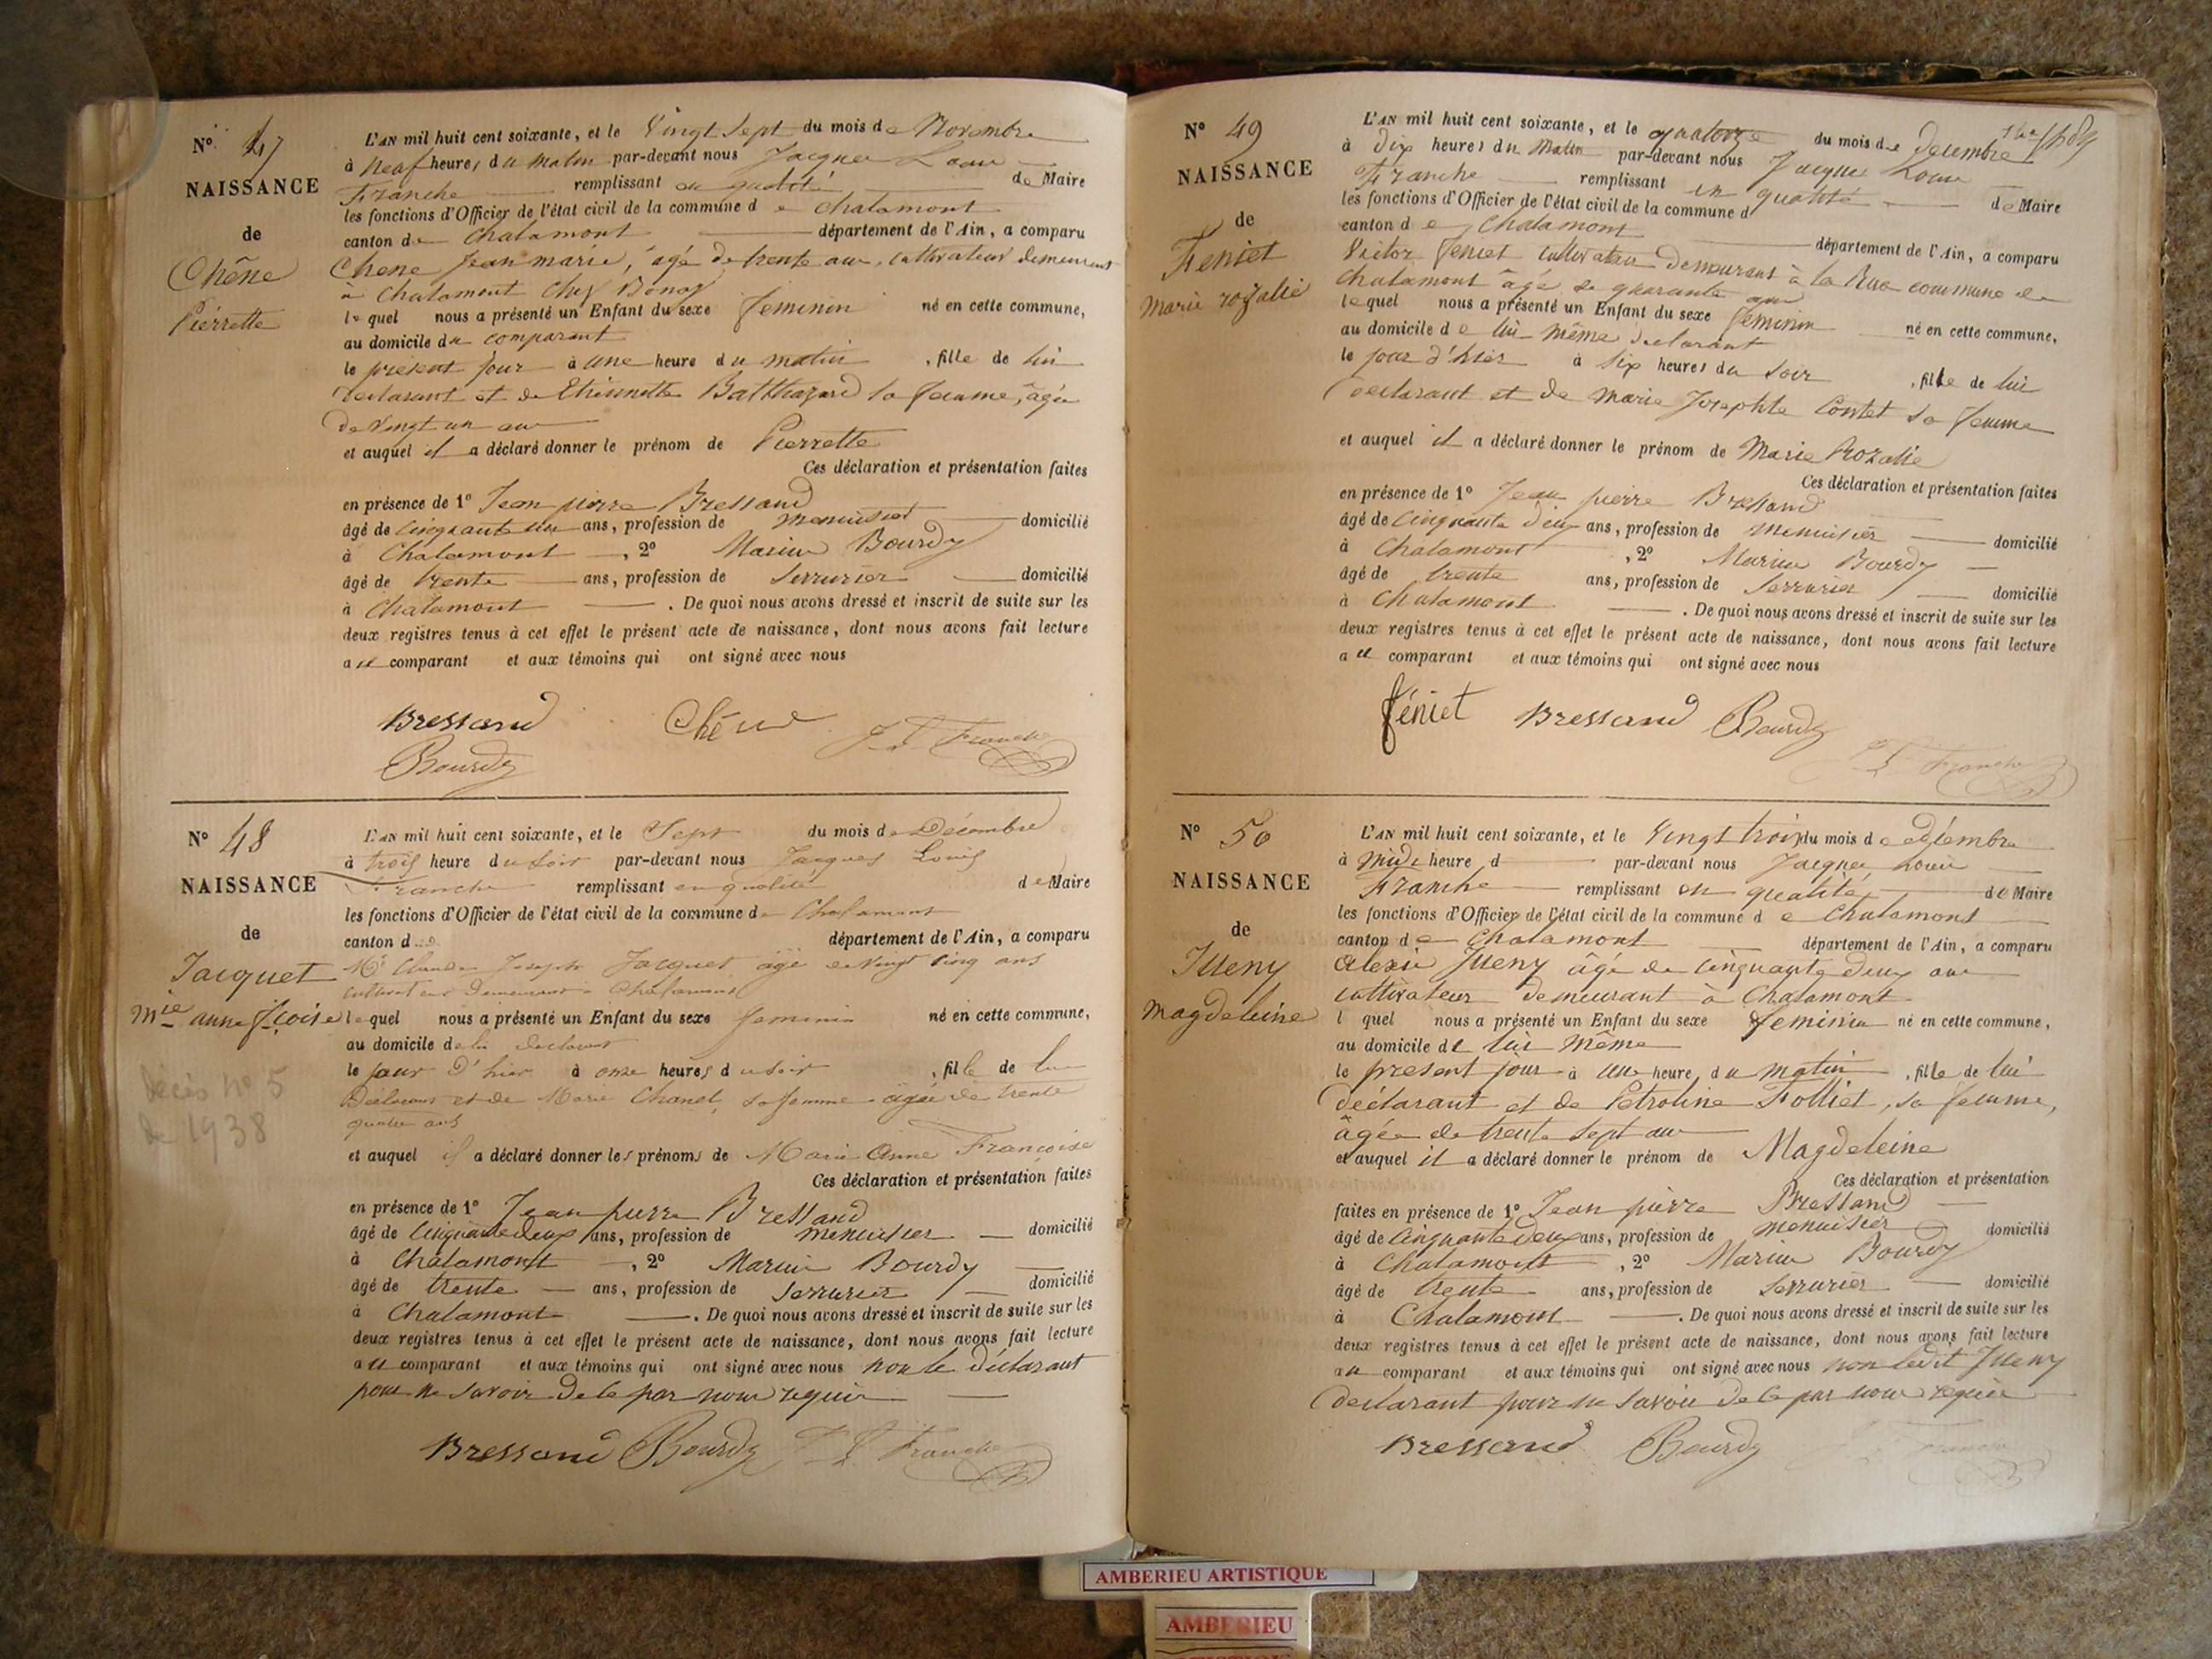 N° 47
NAISSANCE
de
Chêne
Pierrette
L'AN mil huit cent soixante, et le Vingt Sept du mois de Novembre
à Neuf heures du matin par-devant nous Jacques Louis
Franche remplissant en qualité de Maire
les fonctions d'Officier de l'état civil de la commune de Chalamont
canton de Chalamont département de l'Ain, a comparu
Chene Jean marie, âgé de trente ans, cultivateur demeurant
à Chalamont
lequel nous a présenté un Enfant du sexe feminin né en cette commune,
au domicile du comparant
le présent jour à une heure du matin, fille de lui
déclarant et de Etiennette Balthazard sa femme, âgée
de vingt un ans
et auquel il a déclaré donner le prénom de Pierrette
Ces déclaration et présentation faites
en présence de 1° Jean pierre Bressand
âgé de cinquante un ans, profession de menuisier domicilié
à Chalamont, 2° Marius Bourdy
âgé de trente ans, profession de Serrurier domicilié
à Chalamont. De quoi nous avons dressé et inscrit de suite sur les
deux registres tenus à cet effet le présent acte de naissance, dont nous avons fait lecture
au comparant et aux témoins qui ont signé avec nous
Bressand Chêne J L Franche
Bourdy
N° 48
NAISSANCE
de
Jacquet
Mie anne fçoise
décès n° 5
de 1938
L'AN mil huit cent soixante, et le Sept du mois de Décembre
à trois heure du soir par-devant nous Jacques Louis
Franche remplissant en qualité de Maire
les fonctions d'Officier de l'état civil de la commune de Chalamont
canton d département de l'Ain, a comparu
Claude Joseph Jacquet âgé de vingt cinq ans
cultivateur demeurant à Chalamont
lequel nous a présenté un Enfant du sexe feminin né en cette commune,
au domicile de lui déclarant
le jour d'hier à onze heures du soir, fille de lui
Déclarant et de Marie Chanel, sa femme âgée de trente
quatre ans
et auquel il a déclaré donner les prénoms de Marie Anne Françoise
Ces déclaration et présentation faites
en présence de 1° Jean pierre Bressand
âgé de cinquante deux ans, profession de menuisier domicilié
à Chalamont, 2° Marius Bourdy
âgé de trente ans, profession de Serrurier domicilié
à Chalamont. De quoi nous avons dressé et inscrit de suite sur les
deux registres tenus à cet effet le présent acte de naissance, dont nous avons fait lecture
au comparant et aux témoins qui ont signé avec nous non le déclarant
pour ne savoir de ce par nous requis
Bressand Bourdy J L Franche
N° 49
NAISSANCE
de
Feniet
Marie rozalie
L'AN mil huit cent soixante, et le quatorze du mois de Decembre
à dix heures du Matin par-devant nous Jacques Louis
Franche remplissant en qualité de Maire
les fonctions d'Officier de l'état civil de la commune d
canton de Chalamont département de l'Ain, a comparu
Victor Feniet cultivateur demeurant à la Rue commune de
Chalamont âgé de quarante ans
lequel nous a présenté un Enfant du sexe feminin né en cette commune,
au domicile de lui même déclarant
le jour d'hier à six heures du soir, fille de lui
déclarant et de marie Josephte Contet sa femme
et auquel il a déclaré donner le prénom de Marie Rozalie
Ces déclaration et présentation faites
en présence de 1° Jean pierre Bressand
âgé de cinquante deux ans, profession de menuisier domicilié
à Chalamont, 2° Marius Bourdy
âgé de trente ans, profession de Serrurier domicilié
à Chalamont. De quoi nous avons dressé et inscrit de suite sur les
deux registres tenus à cet effet le présent acte de naissance, dont nous avons fait lecture
au comparant et aux témoins qui ont signé avec nous
féniet Bressand Bourdy
J L Franche
N° 50
NAISSANCE
de
Jueny
Magdeleine
L'AN mil huit cent soixante, et le Vingt trois du mois de décembre
à midi heure d par-devant nous Jacques Louis
Franche remplissant en qualité de Maire
les fonctions d'Officier de l'état civil de la commune de Chalamont
canton de Chalamont département de l'Ain, a comparu
alexis Jueny âgé de cinquante deux ans
cultivateur demeurant à Chalamont
l quel nous a présenté un Enfant du sexe feminin né en cette commune,
au domicile de lui même
le présent jour à une heure du matin, fille de lui
déclarant et de Petroline Folliet, sa femme,
âgée de trente sept ans
et auquel il a déclaré donner le prénom de Magdeleine
Ces déclaration et présentation
faites en présence de 1° Jean pierre Bressand
âgé de cinquante deux ans, profession de menuisier domicilié
à Chalamont, 2° Marius Bourdy
âgé de trente ans, profession de Serrurier domicilié
à Chalamont. De quoi nous avons dressé et inscrit de suite sur les
deux registres tenus à cet effet le présent acte de naissance, dont nous avons fait lecture
au comparant et aux témoins qui ont signé avec nous non ledit Jueny
déclarant pour ne savoir de ce par nous requis
Bressand Bourdy J L Franche
AMBERIEU ARTISTIQUE
AMBERIEU